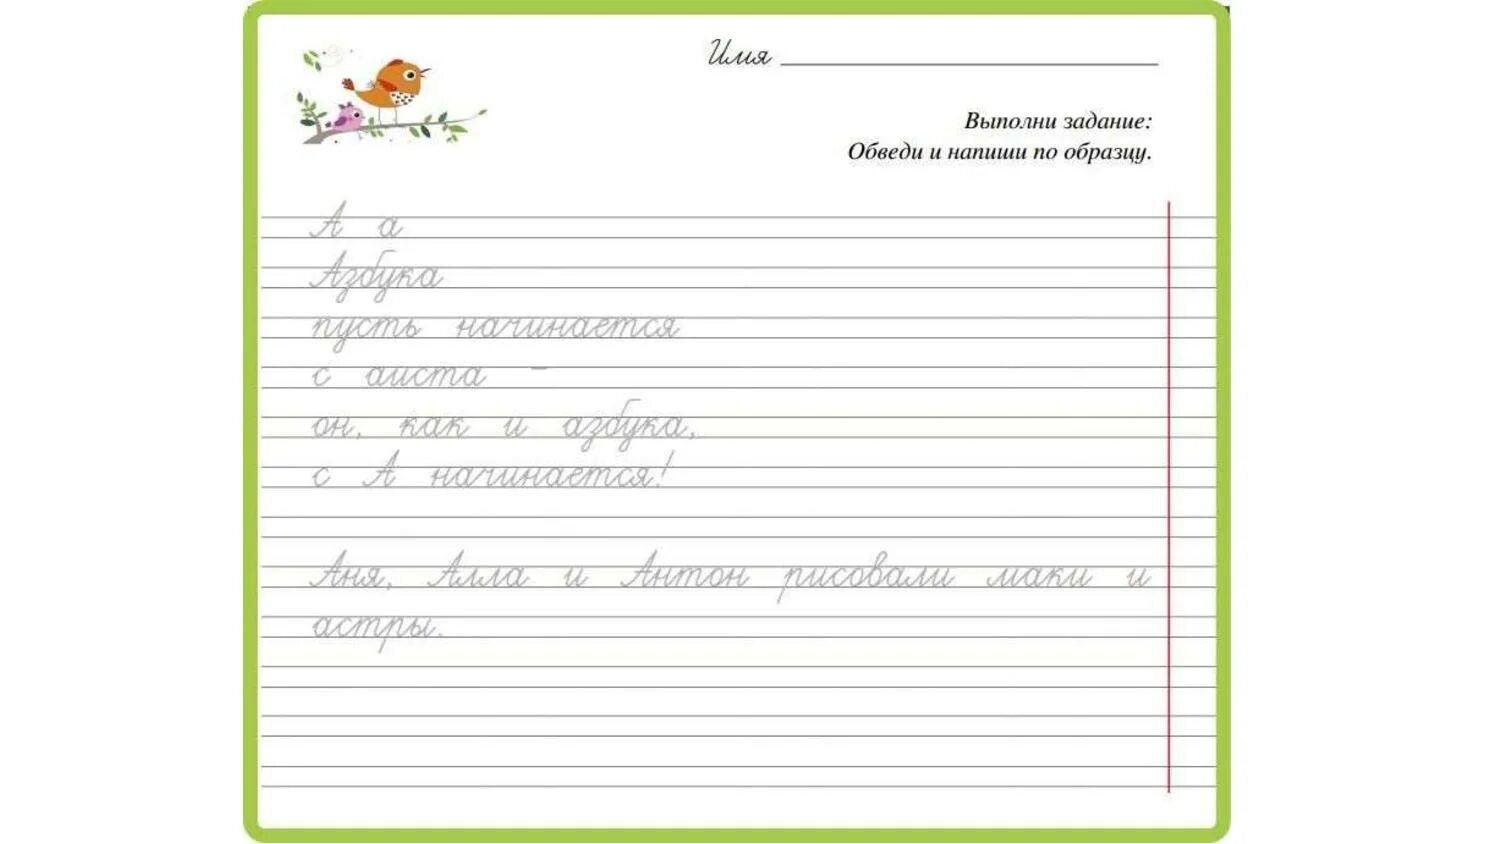 Имя
Выполни задание:
Обведи и напиши по образцу.
А а
Азбука
пусть начинается
с аиста -
он, как и азбука,
с А начинается!
Аня, Алла и Антон рисовали маки и
астры.